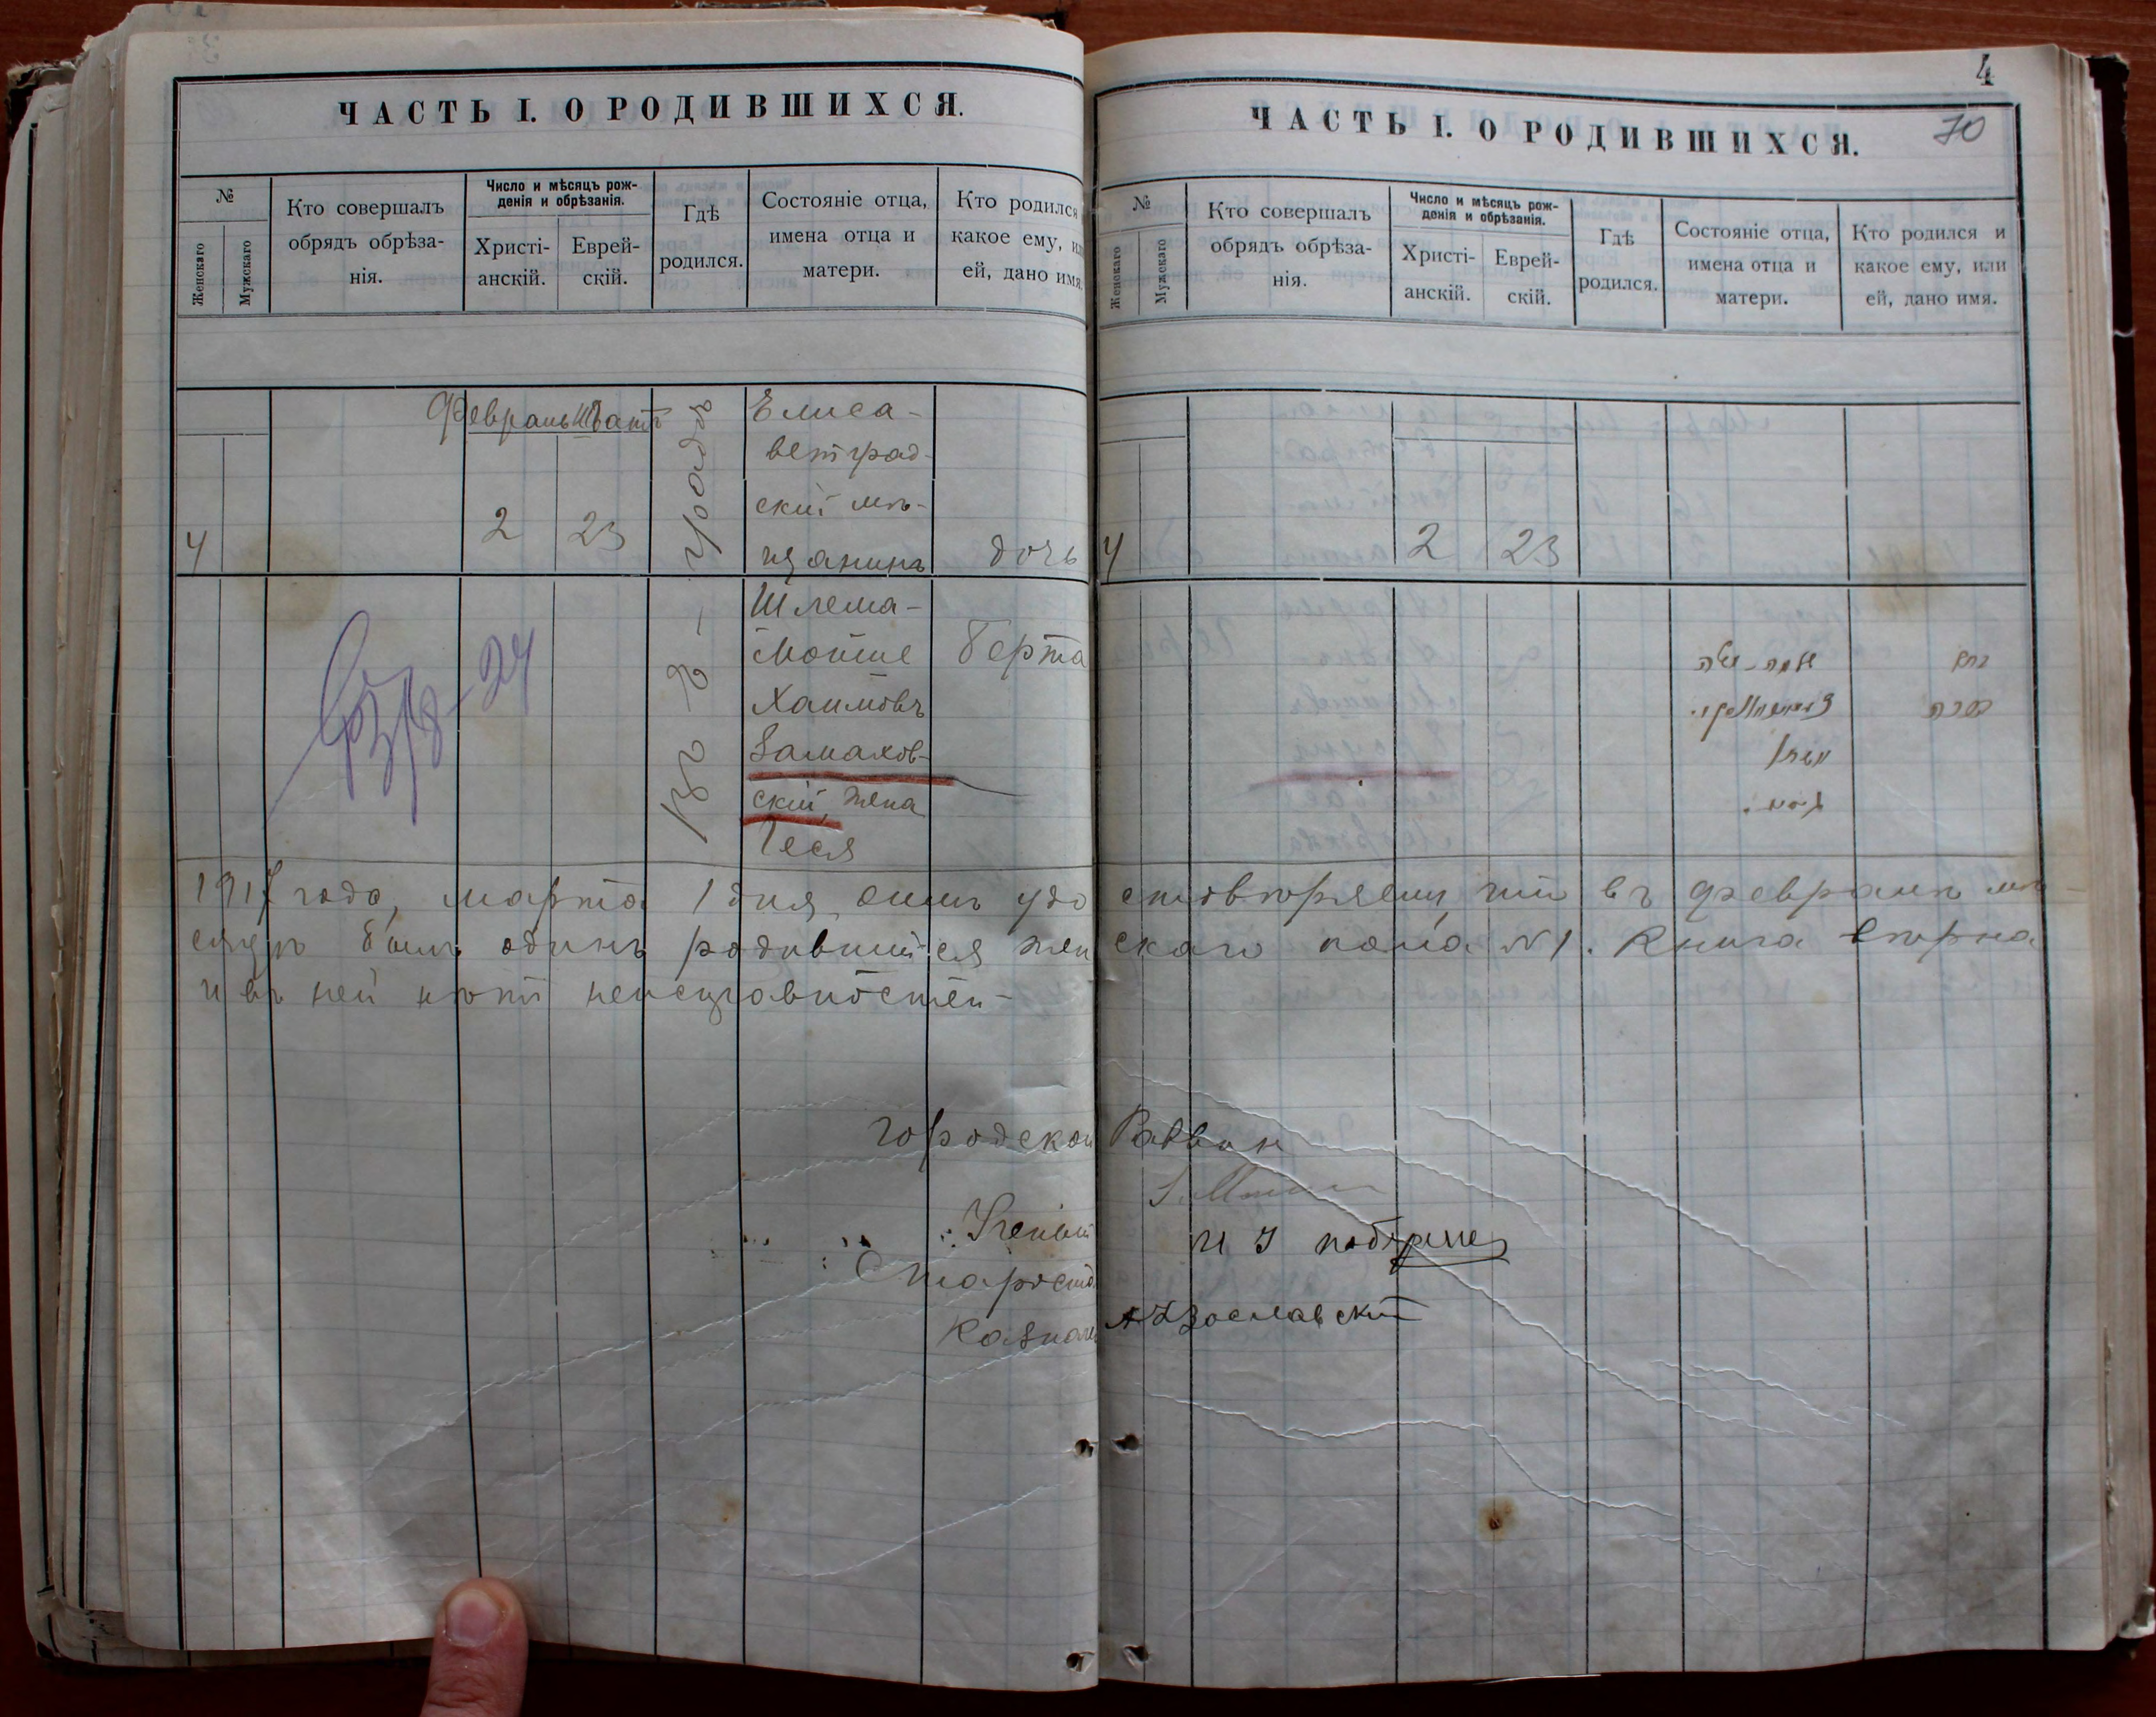 ЧАСТЬ I. О РОДИВШИХСЯ.
№
Женскаго
Мужскаго
Кто совершалъ
обрядъ обрѣза-
нія.
Число и мѣсяцъ рож-
денія и обрѣзанія.
Христі-
анскій.
Еврей-
скій.
Гдѣ
родился.
Состояніе отца,
имена отца и
матери.
Кто родился
какое ему, или
ей, дано имя.
Февраль Шватъ
4
2
23
Елиса-
ветград-
скій мѣ-
щанинъ
Шлема-
Мойше
Хаимовъ
Замахов-
скій, жена
Геся
дочь
Берта
4
70
ЧАСТЬ I. О РОДИВШИХСЯ.
№
Женскаго
Мужскаго
Кто совершалъ
обрядъ обрѣза-
нія.
Число и мѣсяцъ рож-
денія и обрѣзанія.
Христі-
анскій.
Еврей-
скій.
Гдѣ
родился.
Состояніе отца,
имена отца и
матери.
Кто родился и
какое ему, или
ей, дано имя.
4
2
23
1917 года, марта 1 дня, симъ удостовѣряемъ, что въ февралѣ мѣ-
сяцѣ былъ одинъ родившійся женскаго пола №1. Книга вѣрна
и въ ней нѣтъ неисправностей-
Городской Раввин
Ученый
Староста
Казначей